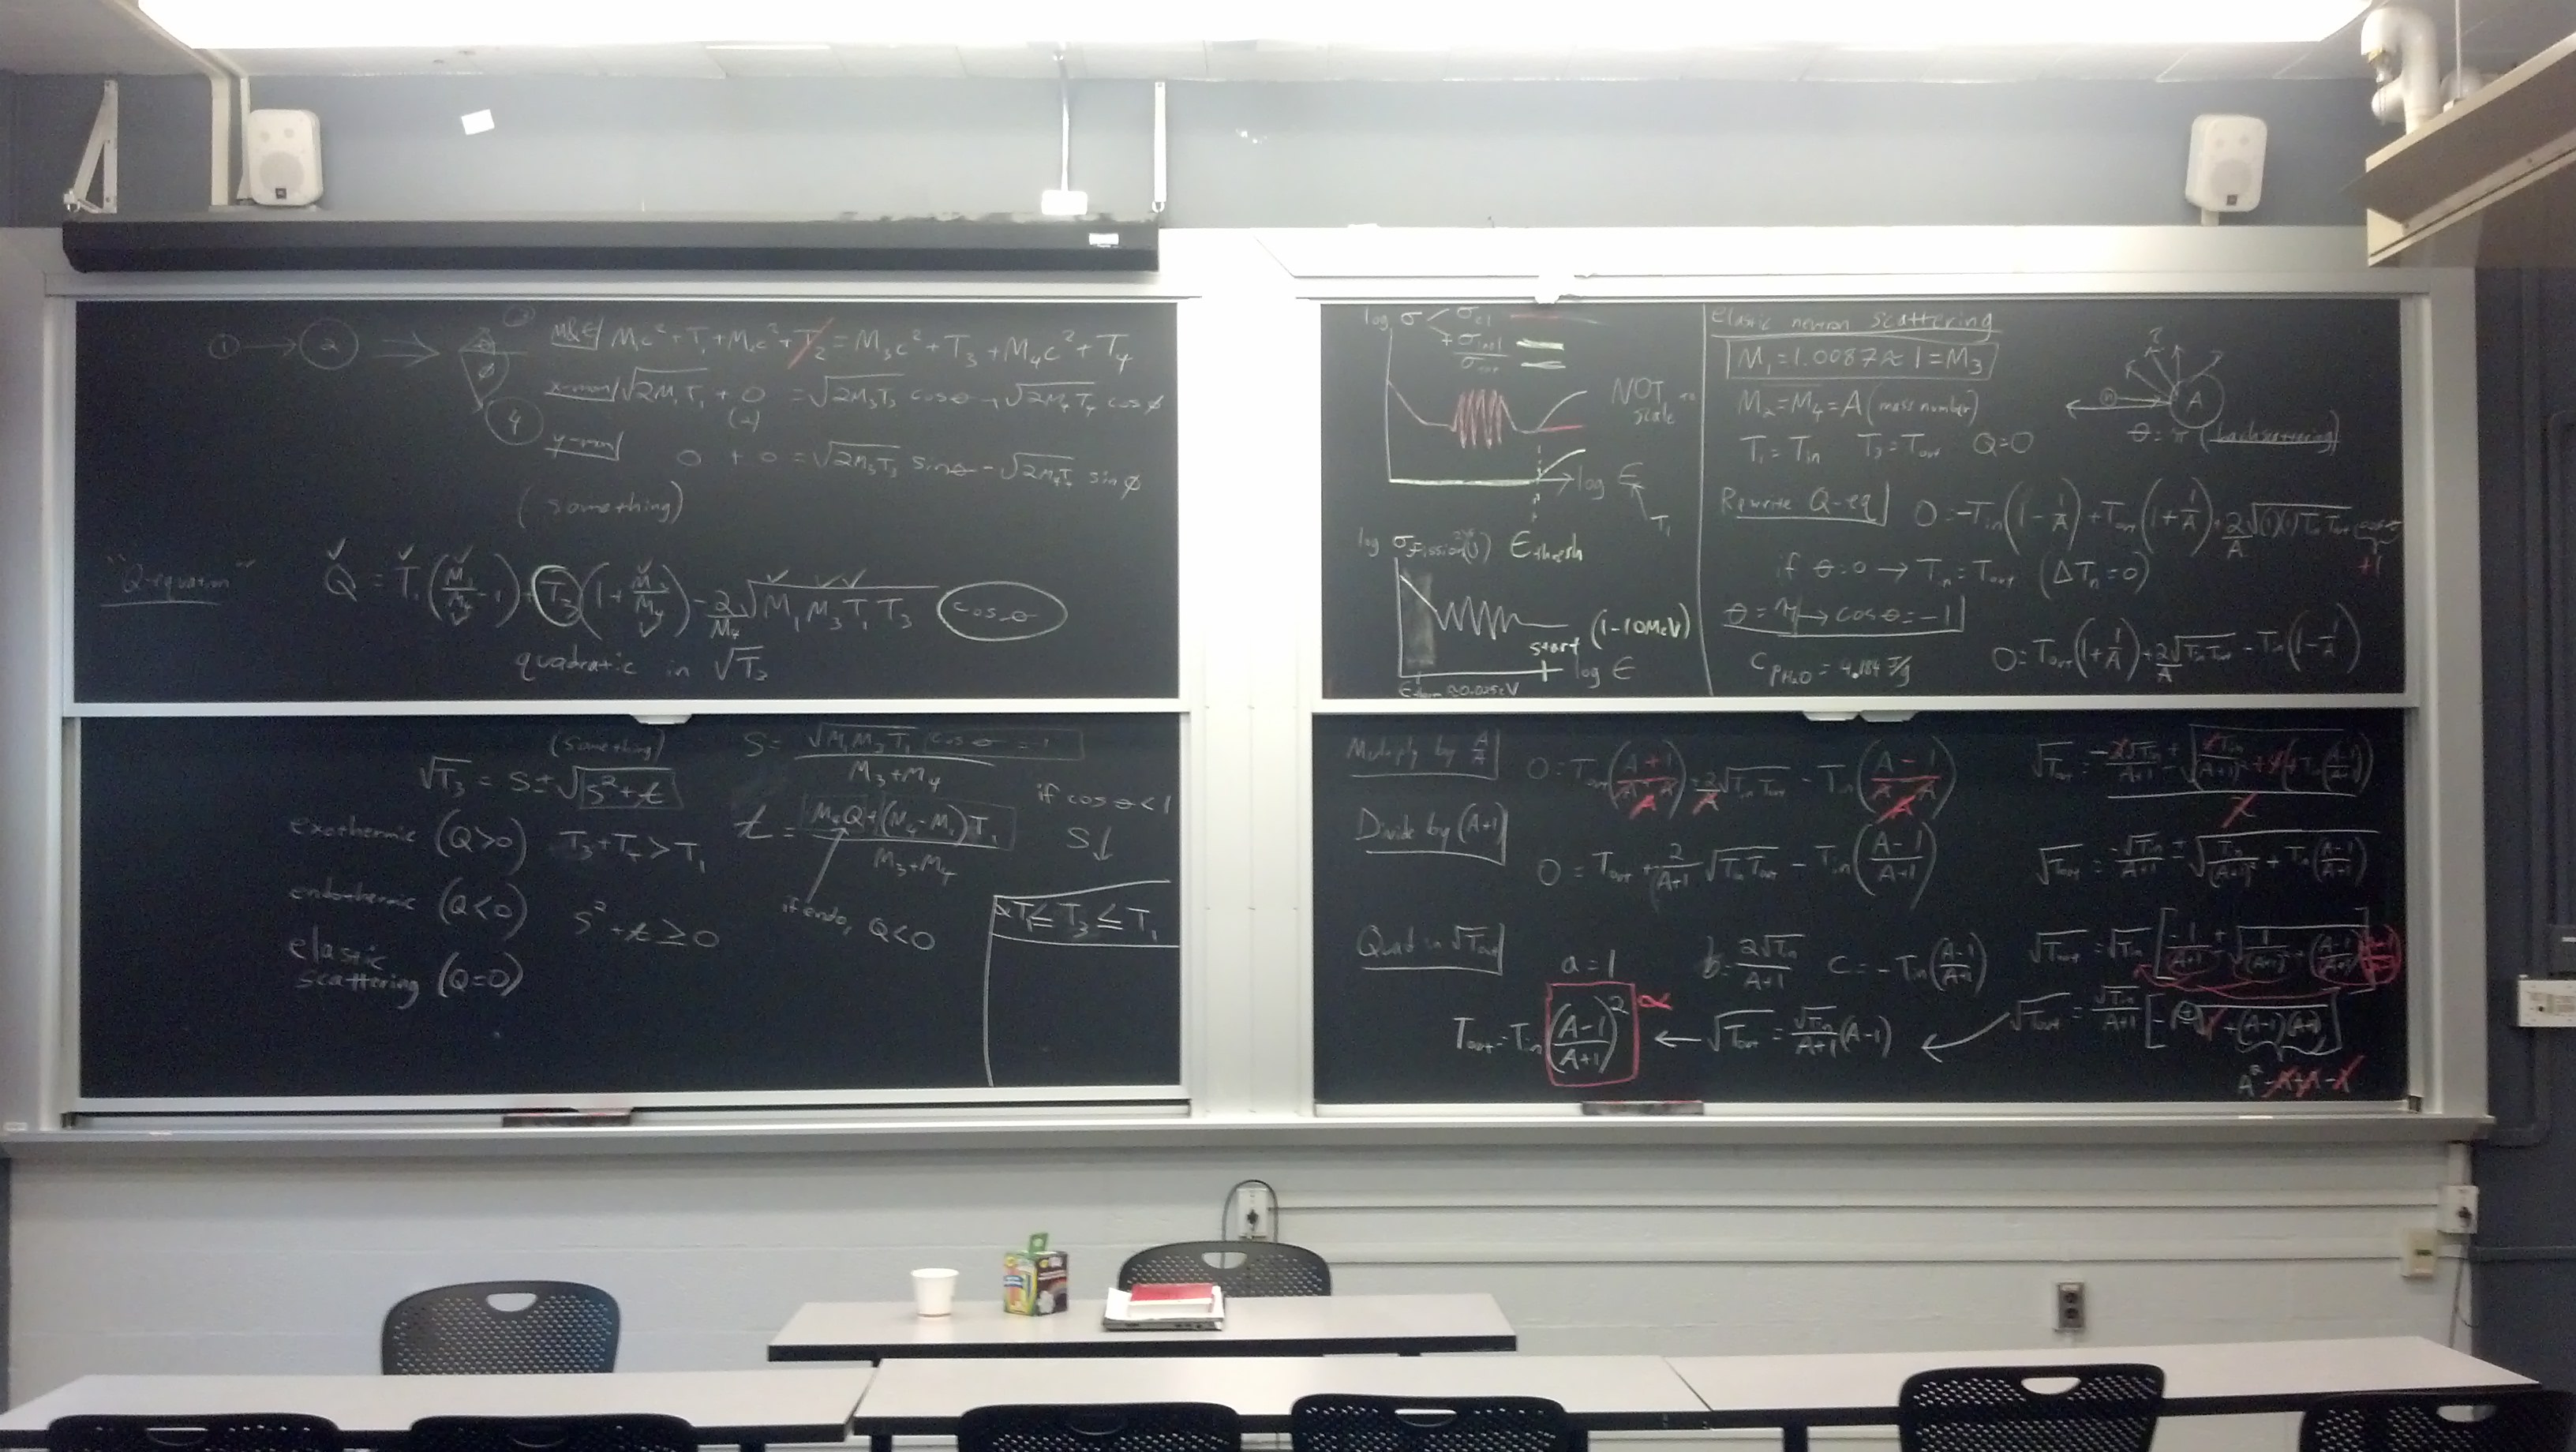 ① → ② ⇒ ③ θ φ ④
M&E M₁c² + T₁ + M₂c² + T₂ = M₃c² + T₃ + M₄c² + T₄
x-mom √2M₁T₁ + 0 = √2M₃T₃ cosθ + √2M₄T₄ cosφ
(2)
y-mom 0 + 0 = √2M₃T₃ sinθ - √2M₄T₄ sinφ
(something)
"Q-equation" Q = T₁(M₁/M₄ - 1) + T₃(1 + M₃/M₄) - 2/M₄ √M₁M₃T₁T₃ cosθ
quadratic in √T₃
(something)
√T₃ = s ± √s² + t
exothermic (Q>0) T₃ + T₄ > T₁
endothermic (Q<0) s² + t ≥ 0
elastic
scattering (Q=0)
S = √M₁M₃T₁ cosθ = 1 / M₃+M₄
t = M₄Q + (M₄-M₁)T₁ / M₃+M₄
if endo, Q<0
if cosθ<1
S↓
αT₁ ≤ T₃ ≤ T₁
log σ < σel
+ σinel
NOT to
scale
log E
T₁
log σFission(U) Ethresh
(1-10MeV)
start
log E
Etherm ≈0.025eV
elastic neutron scattering
M₁ = 1.0087 ≈ 1 = M₃
M₂ = M₄ = A (mass number)
T₁ = Tin T₃ = Tout Q=0
n A
θ = π (backscattering)
Rewrite Q-eq 0 = -Tin(1 - 1/A) + Tout(1 + 1/A) + 2/A √(1)(1)Tin Tout cosθ
+1
if θ=0 → Tin = Tout (ΔTn = 0)
θ = π → cosθ = -1
CpH₂O = 4.184 J/g
0 = Tout(1 + 1/A) + 2/A √Tin Tout - Tin(1 - 1/A)
Multiply by A/A 0 = Tout(A+1/A) + 2/A √Tin Tout - Tin(A-1/A)
Divide by (A+1)
0 = Tout + 2/A+1 √Tin Tout - Tin(A-1/A+1)
Quad in √Tout
a = 1 b = 2√Tin/A+1 c = -Tin(A-1/A+1)
Tout = Tin (A-1/A+1)² α ← √Tout = √Tin/A+1 (A-1)
√Tout = -√Tin/A+1 ± √Tin/(A+1)² + Tin(A-1/A+1)
√Tout = √Tin [-1/A+1 ± √1/(A+1)² + (A-1/A+1)]
√Tout = √Tin/A+1 [-1 ± √1 + (A-1)(A+1)]
A² - A + A - 1